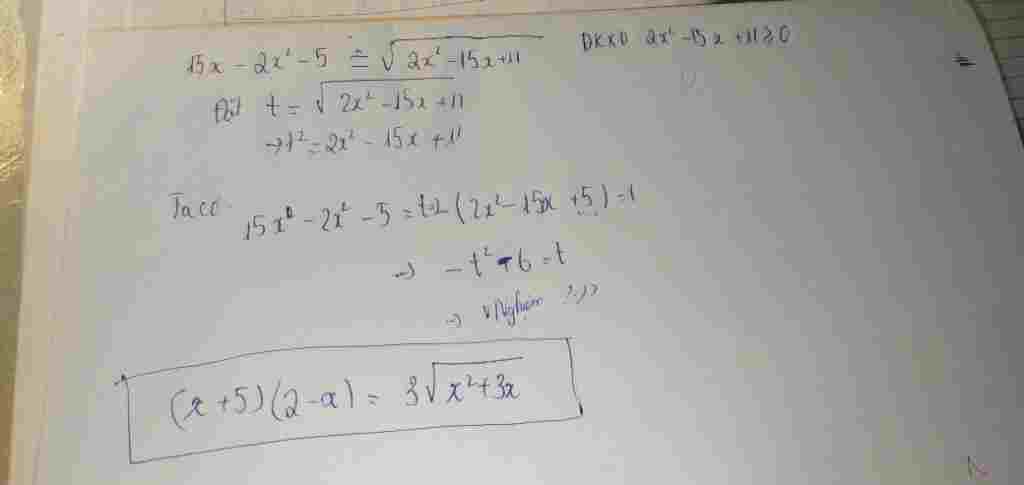 15x - 2x² - 5 = √(2x² - 15x + 11) ĐKXĐ 2x² - 15x + 11 ≥ 0
Đặt t = √(2x² - 15x + 11)
→ t² = 2x² - 15x + 11
Ta có
15x - 2x² - 5 = t → -(2x² - 15x + 5) = t
→ -t² + 6 = t
→ Nghiệm
(x + 5)(2 - x) = 3√(x² + 3x)